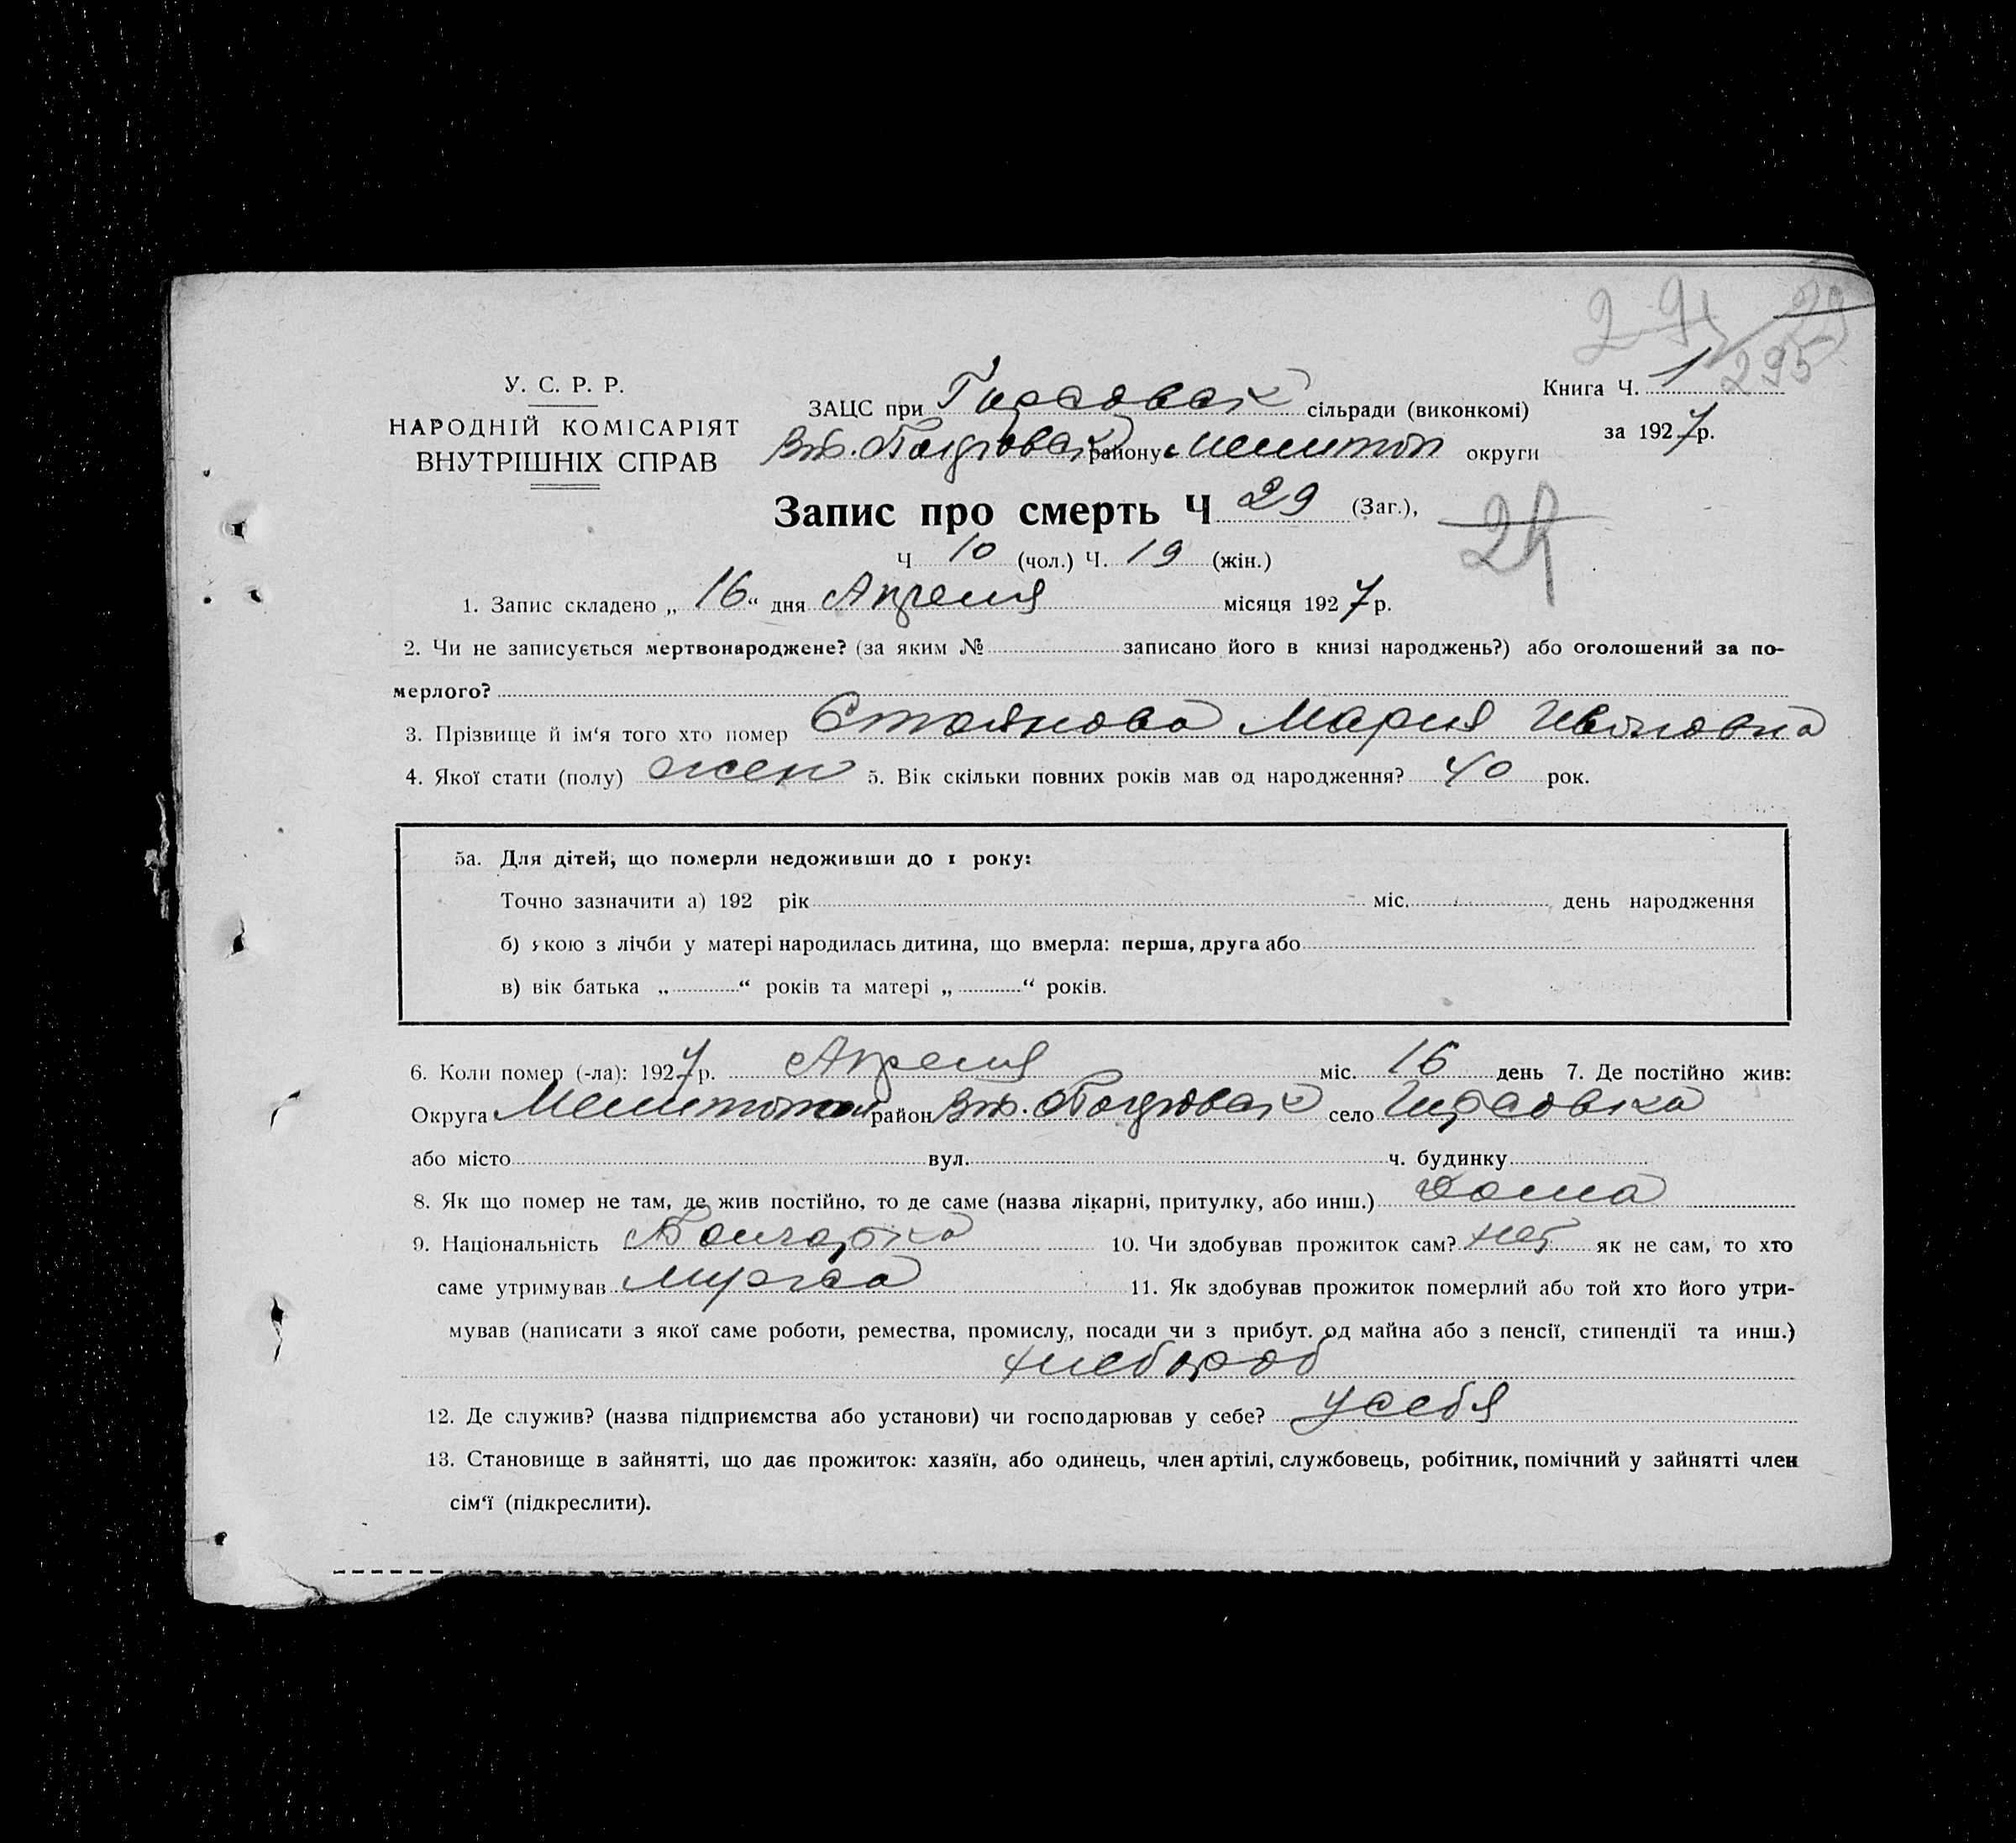 29
295
У. С. Р. Р.
НАРОДНІЙ КОМІСАРІЯТ
ВНУТРІШНІХ СПРАВ
ЗАЦС при Гирсовск сільради (виконкомі)
району Мелитоп округи
Книга Ч. 1
за 1927 р.
Запис про смерть Ч 29 (Заг.),
Ч 10 (чол.) Ч. 19 (жін.)
1. Запис складено „ 16 “ дня Апреля місяця 1927 р.
2. Чи не записується мертвонароджене? (за яким № записано його в книзі народжень?) або оголошений за по-
мерлого?
3. Прізвище й ім‘я того хто помер Стоянова Мария Ивановна
4. Якої стати (полу) жен 5. Вік скільки повних років мав од народження? 40 рок.
5а. Для дітей, що померли недоживши до 1 року:
Точно зазначити а) 192 рік міс. день народження
б) якою з лічби у матері народилась дитина, що вмерла: перша, друга або
в) вік батька „ “ років та матері „ “ років.
6. Коли помер (-ла): 1927 р. Апреля міс. 16 день 7. Де постійно жив:
Округа Мелитопол район село Гирсовка
або місто вул. ч. будинку
8. Як що помер не там, де жив постійно, то де саме (назва лікарні, притулку, або инш.) Дома
9. Національність Болгарка 10. Чи здобував прожиток сам? нет як не сам, то хто
саме утримував муж 11. Як здобував прожиток померлий або той хто його утри-
мував (написати з якої саме роботи, ремества, промислу, посади чи з прибут. од майна або з пенсії, стипендії та инш.)
хлебороб
12. Де служив? (назва підприємства або установи) чи господарював у себе? у себя
13. Становище в зайнятті, що дає прожиток: хазяїн, або одинець, член артілі, службовець, робітник, помічний у зайнятті член
сім‘ї (підкреслити).